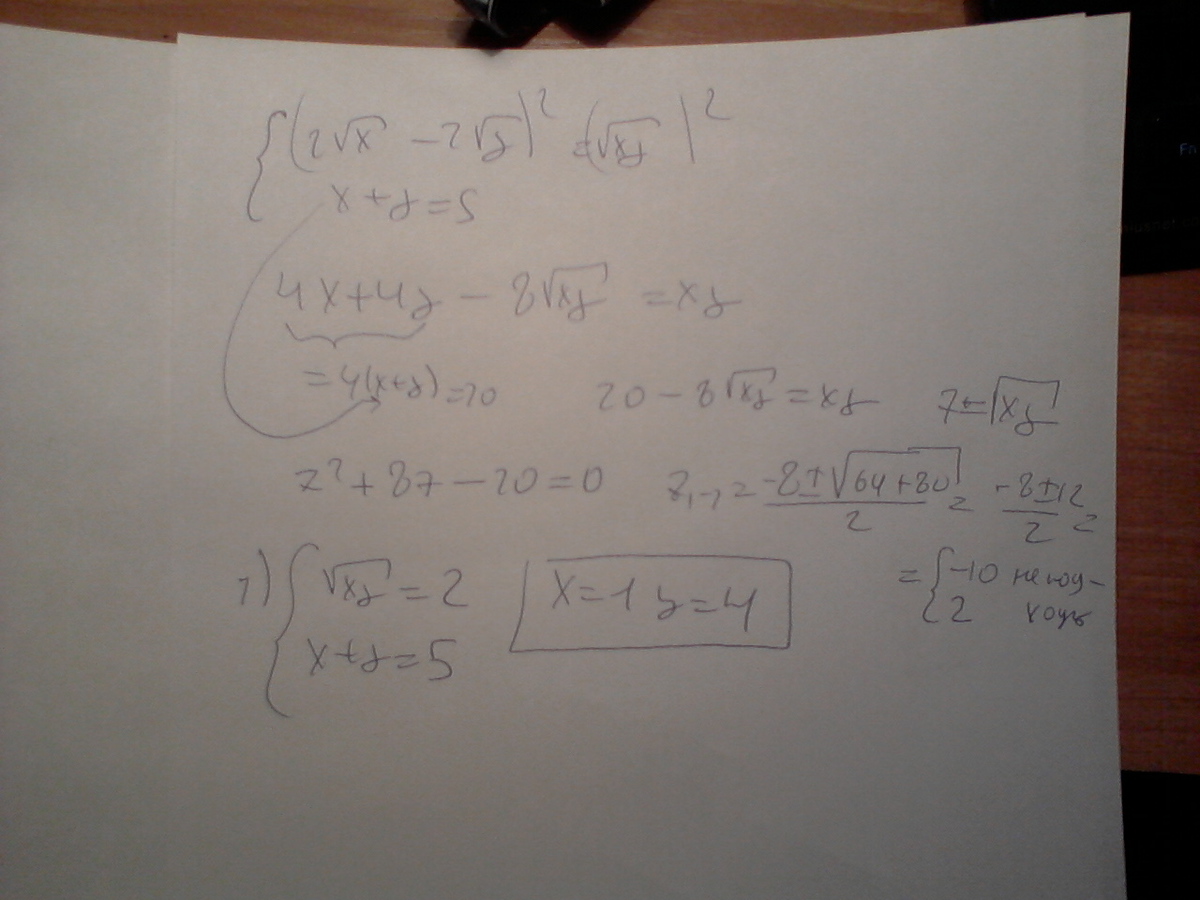 {(2√x − 2√y)² = (√xy)²
x + y = 5
4x + 4y − 8√xy = xy
= 4(x+y) = 20 20 − 8√xy = xy z = √xy
z² + 8z − 20 = 0 z₁,₂ = (−8 ± √(64+80))/2 = (−8 ± 12)/2 =
= {−10 не под-
2 ходь
1) {√xy = 2 x = 1 y = 4
x + y = 5